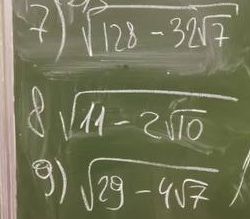 7) √(128 - 32√7)
8 √(11 - 2√10)
9) √(29 - 4√7)